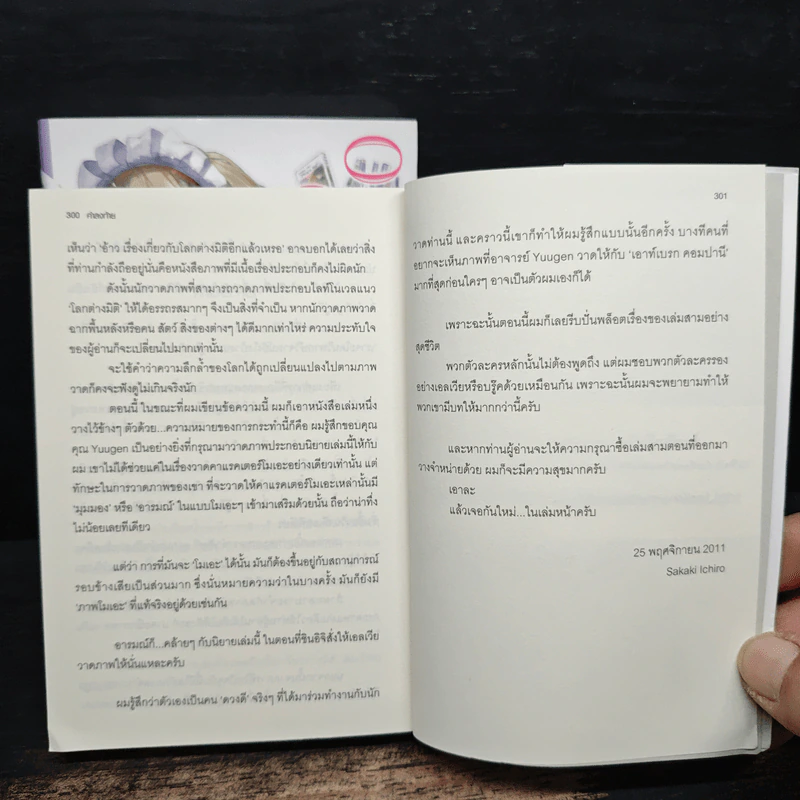 300 คำลงท้าย
เห็นว่า ‘อ้าว เรื่องเกี่ยวกับโลกต่างมิติอีกแล้วเหรอ’ อาจบอกได้เลยว่าสิ่ง
ที่ท่านกำลังถืออยู่นั่นคือหนังสือภาพที่มีเนื้อเรื่องประกอบก็คงไม่ผิดนัก
ดังนั้นนักวาดภาพที่สามารถวาดภาพประกอบไลท์โนเวลแนว
‘โลกต่างมิติ’ ให้ได้อรรถรสมากๆ จึงเป็นสิ่งที่จำเป็น หากนักวาดภาพวาด
ฉากพื้นหลังหรือคน สัตว์ สิ่งของต่างๆ ได้ดีมากเท่าไหร่ ความประทับใจ
ของผู้อ่านก็จะเปลี่ยนไปมากเท่านั้น
จะใช้คำว่าความลึกล้ำของโลกได้ถูกเปลี่ยนแปลงไปตามภาพ
วาดก็คงจะฟังดูไม่เกินจริงนัก
ตอนนี้ ในขณะที่ผมเขียนข้อความนี้ ผมก็เอาหนังสือเล่มหนึ่ง
วางไว้ข้างๆ ตัวด้วย...ความหมายของการกระทำนี้ก็คือ ผมรู้สึกขอบคุณ
คุณ Yuugen เป็นอย่างยิ่งที่กรุณามาวาดภาพประกอบนิยายเล่มนี้ให้กับ
ผม เขาไม่ได้ช่วยแค่ในเรื่องวาดคาแรคเตอร์โมเอะอย่างเดียวเท่านั้น แต่
ทักษะในการวาดภาพของเขา ที่จะวาดให้คาแรคเตอร์โมเอะเหล่านั้นมี
‘มุมมอง’ หรือ ‘อารมณ์’ ในแบบโมเอะๆ เข้ามาเสริมด้วยนั้น ถือว่าน่าทึ่ง
ไม่น้อยเลยทีเดียว
แต่ว่า การที่มันจะ ‘โมเอะ’ ได้นั้น มันก็ต้องขึ้นอยู่กับสถานการณ์
รอบข้างเสียเป็นส่วนมาก ซึ่งนั่นหมายความว่าในบางครั้ง มันก็ยังมี
‘ภาพโมเอะ’ ที่แท้จริงอยู่ด้วยเช่นกัน
อารมณ์ก็...คล้ายๆ กับนิยายเล่มนี้ ในตอนที่ชินอิจิสั่งให้เอลเวีย
วาดภาพให้นั่นแหละครับ
ผมรู้สึกว่าตัวเองเป็นคน ‘ดวงดี’ จริงๆ ที่ได้มาร่วมทำงานกับนัก
301
วาดท่านนี้ และคราวนี้เขาก็ทำให้ผมรู้สึกแบบนั้นอีกครั้ง บางทีคนที่
อยากจะเห็นภาพที่อาจารย์ Yuugen วาดให้กับ ‘เอาท์เบรก คอมปานี’
มากที่สุดก่อนใครๆ อาจเป็นตัวผมเองก็ได้
เพราะฉะนั้นตอนนี้ผมก็เลยรีบปั่นพล็อตเรื่องของเล่มสามอย่าง
สุดชีวิต
พวกตัวละครหลักนั้นไม่ต้องพูดถึง แต่ผมชอบพวกตัวละครรอง
อย่างเอลเวียหรือบรู๊คด้วยเหมือนกัน เพราะฉะนั้นผมจะพยายามทำให้
พวกเขามีบทให้มากกว่านี้ครับ
และหากท่านผู้อ่านจะให้ความกรุณาซื้อเล่มสามตอนที่ออกมา
วางจำหน่ายด้วย ผมก็จะมีความสุขมากครับ
เอาละ
แล้วเจอกันใหม่...ในเล่มหน้าครับ
25 พฤศจิกายน 2011
Sakaki Ichiro